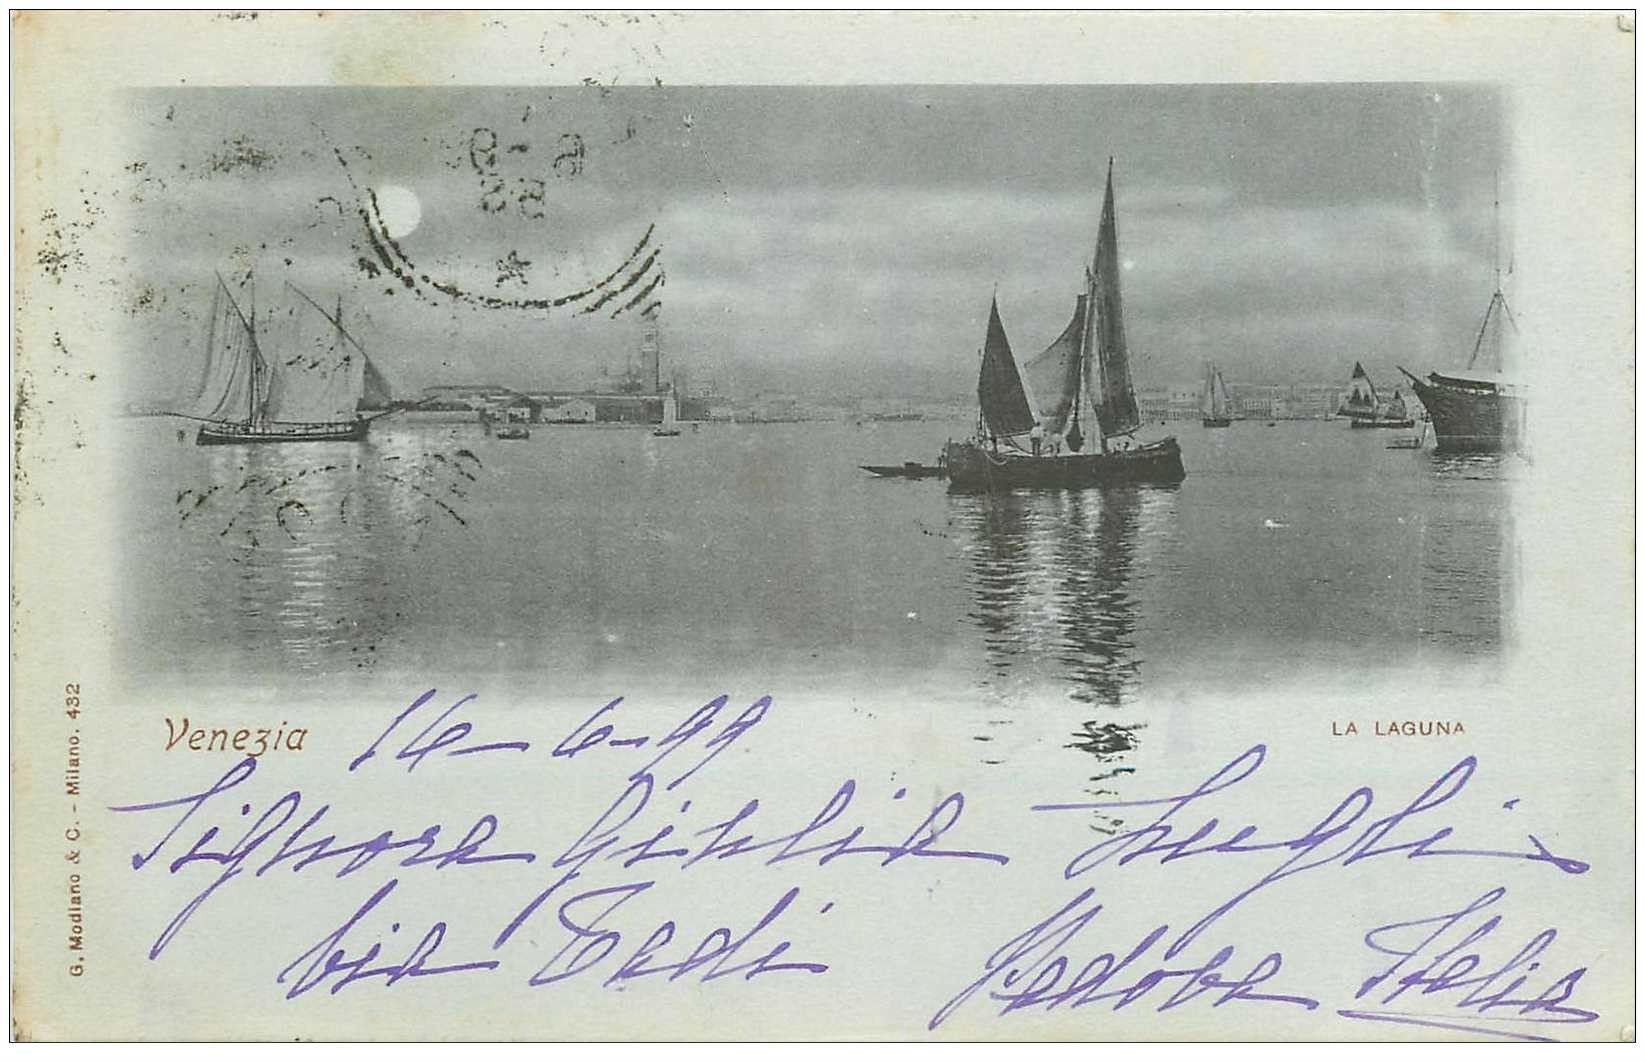 Venezia
16-6-99
LA LAGUNA
Signora Giulia Lugli
via Tadi Padova Italia
G. Modiano & C. - Milano. 432